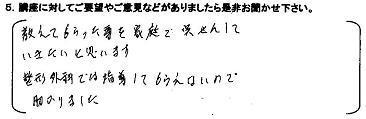 5. 講座に対してご要望やご意見などがありましたら是非お聞かせ下さい。
教えてもらった事を家庭で実せんして
いきたいと思います
整形外科では指導してもらえないので
助かりました